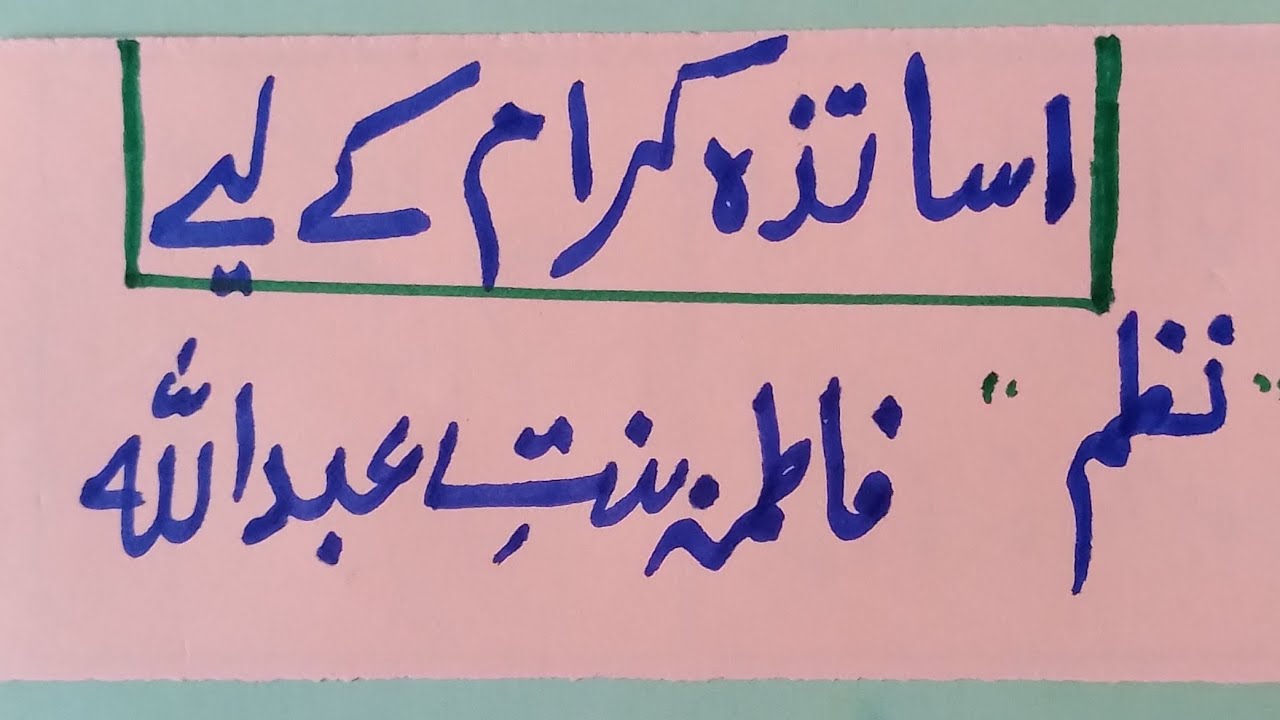 اساتذہ کرام کے لیے
"نظم" فاطمہ بنتِ عبداللّٰہ